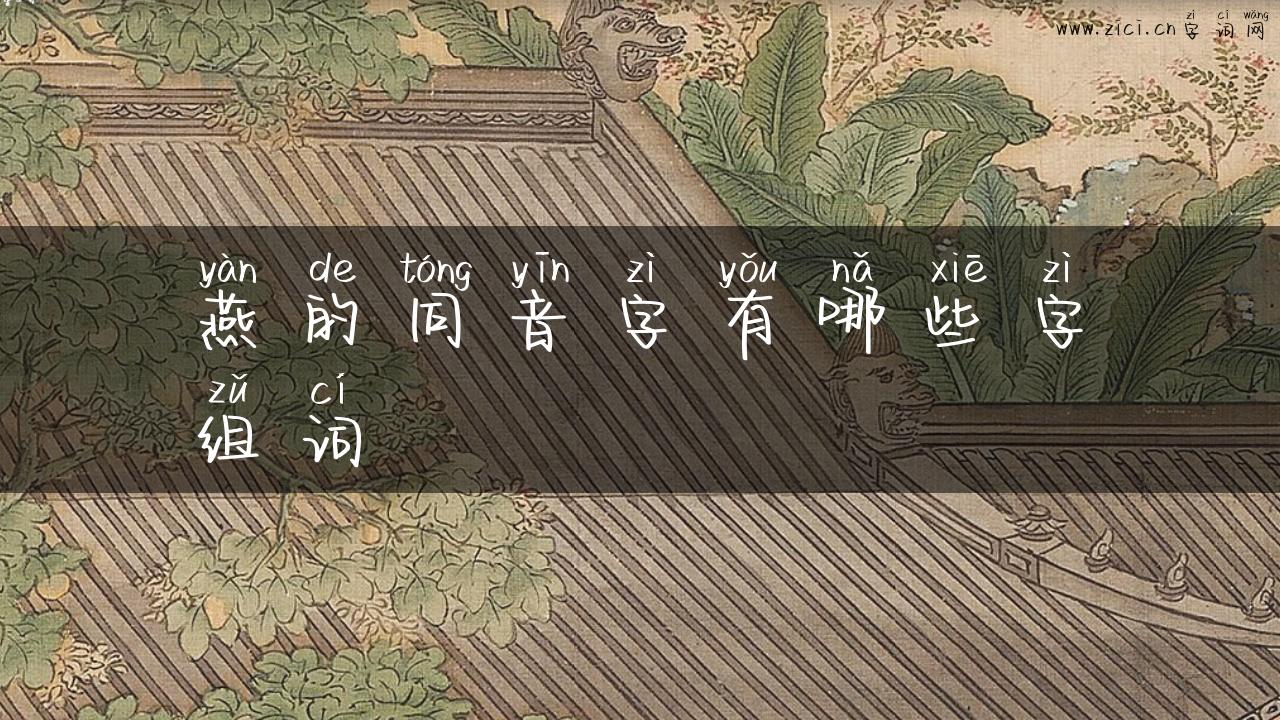 zì cí wǎng
www.zici.cn 字词网
yàn de tóng yīn zì yǒu nǎ xiē zì
燕的同音字有哪些字
zǔ cí
组词